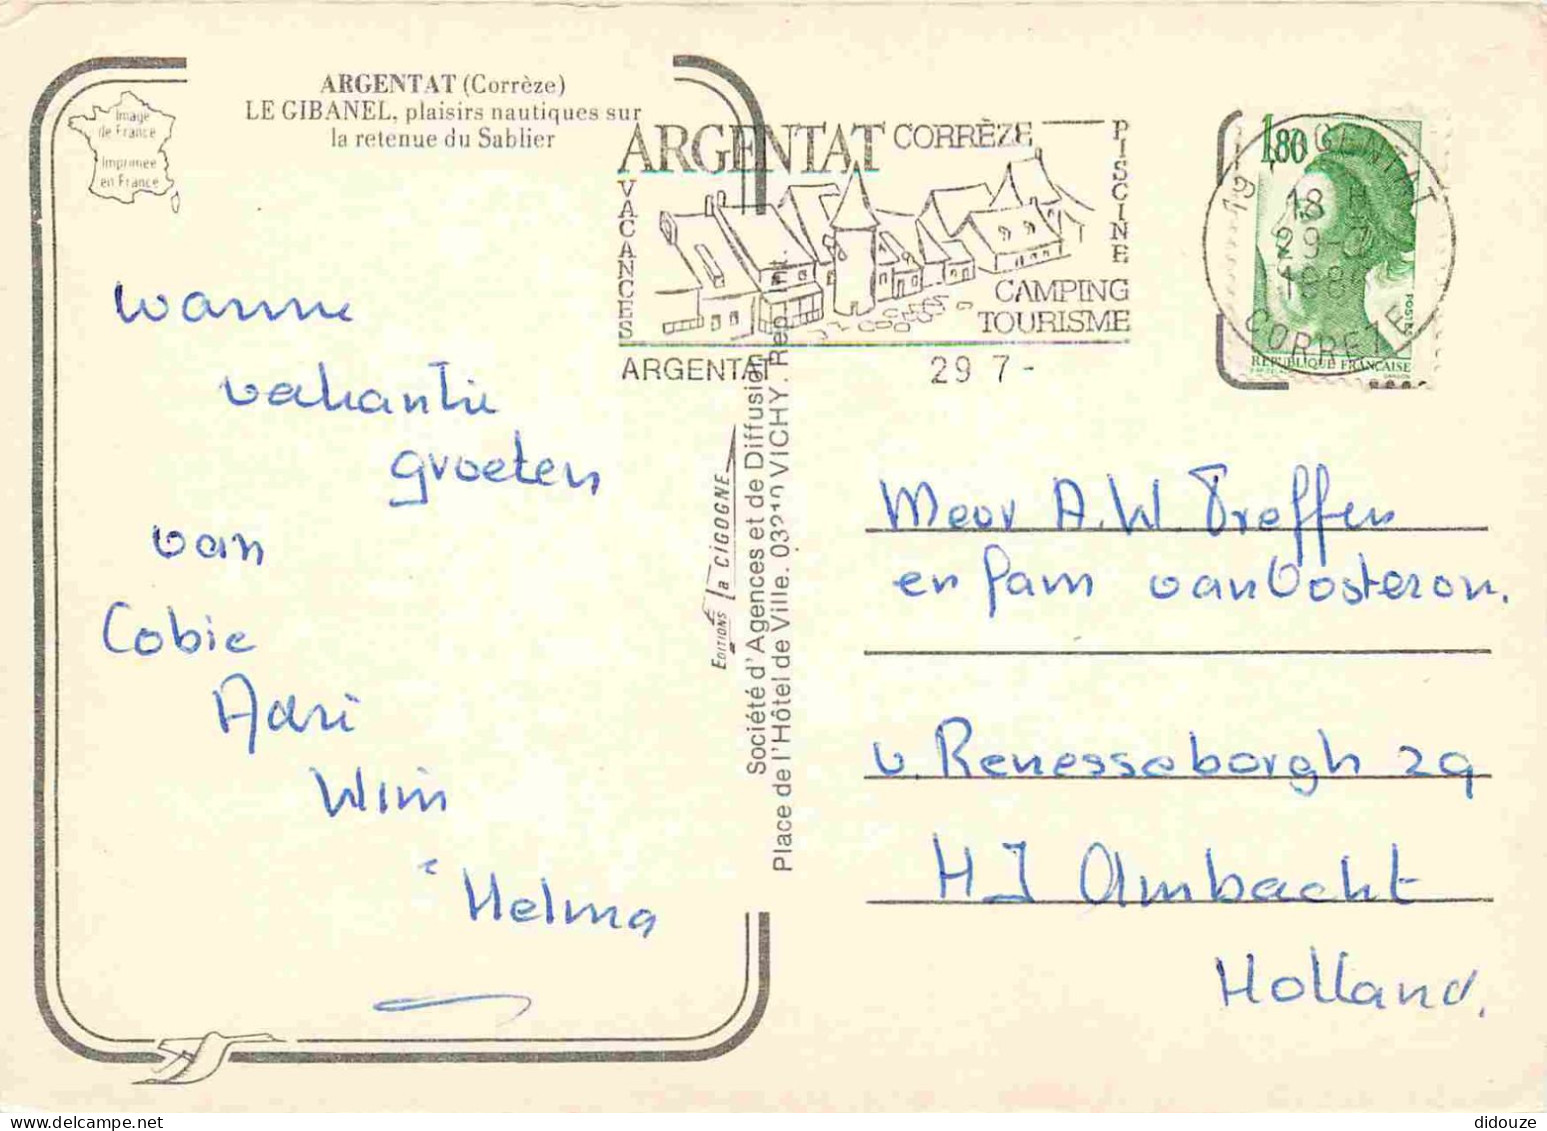 ARGENTAT (Corrèze)
LE GIBANEL, plaisirs nautiques sur
la retenue du Sablier
Image
de France
Imprimée
en France
ARGENTAT CORRÈZE
VACANCES
PISCINE
CAMPING
TOURISME
ARGENTAT
29 7-
1,80
POSTES
REPUBLIQUE FRANÇAISE
19 ARGENTAT
18 H
29-7
CORREZE
warme
vakantie
groeten
van
Cobie
Adri
Wim
Helma
EDITIONS la CIGOGNE
Société d'Agences et de Diffusion
Place de l'Hôtel de Ville. VICHY. Rep. Int.
Mevr A.W Treffers
en fam van Oosteron.
v. Renesseborgh 29
H I Ambacht
Holland.
didouze